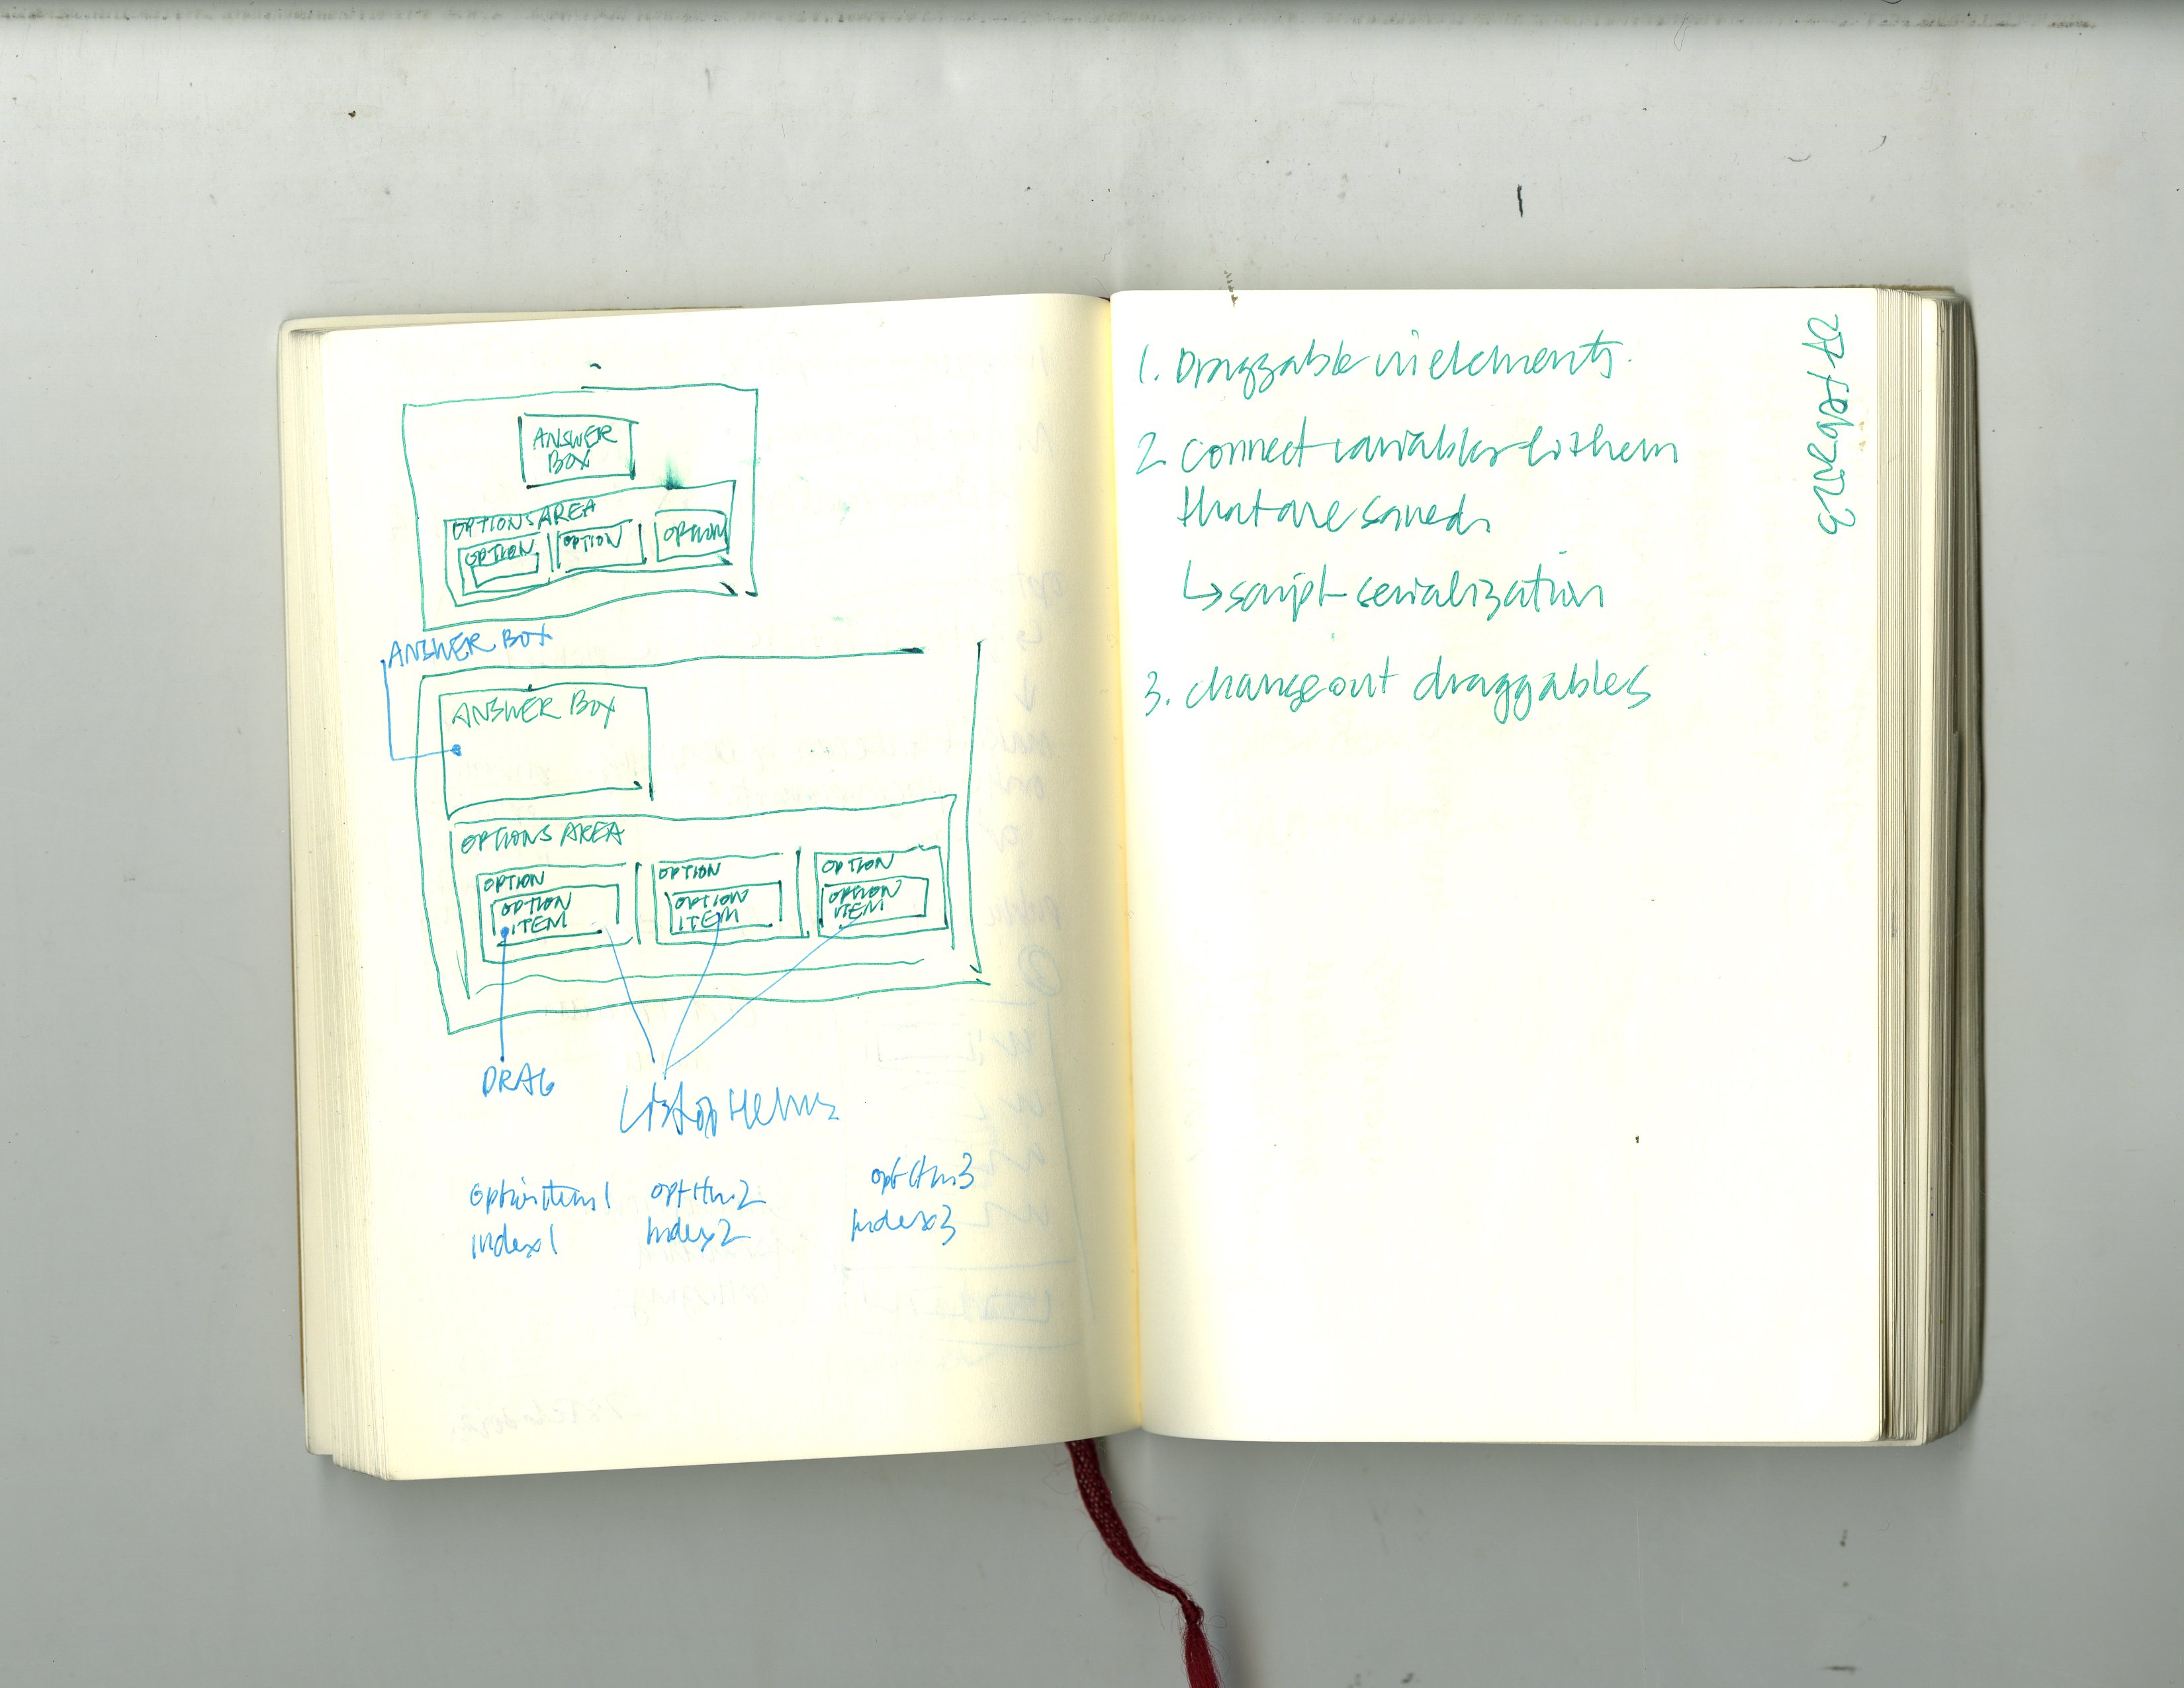 ANSWER
BOX
OPTIONS AREA
OPTION OPTION OPTION
ANSWER BOX
ANSWER BOX
OPTIONS AREA
OPTION OPTION OPTION
OPTION ITEM OPTION ITEM OPTION ITEM
DRAG
index1 index2 index3
1. Draggable ui elements.
2. connect variables to them
that are saved.
↳ script serialization
3. change out draggables